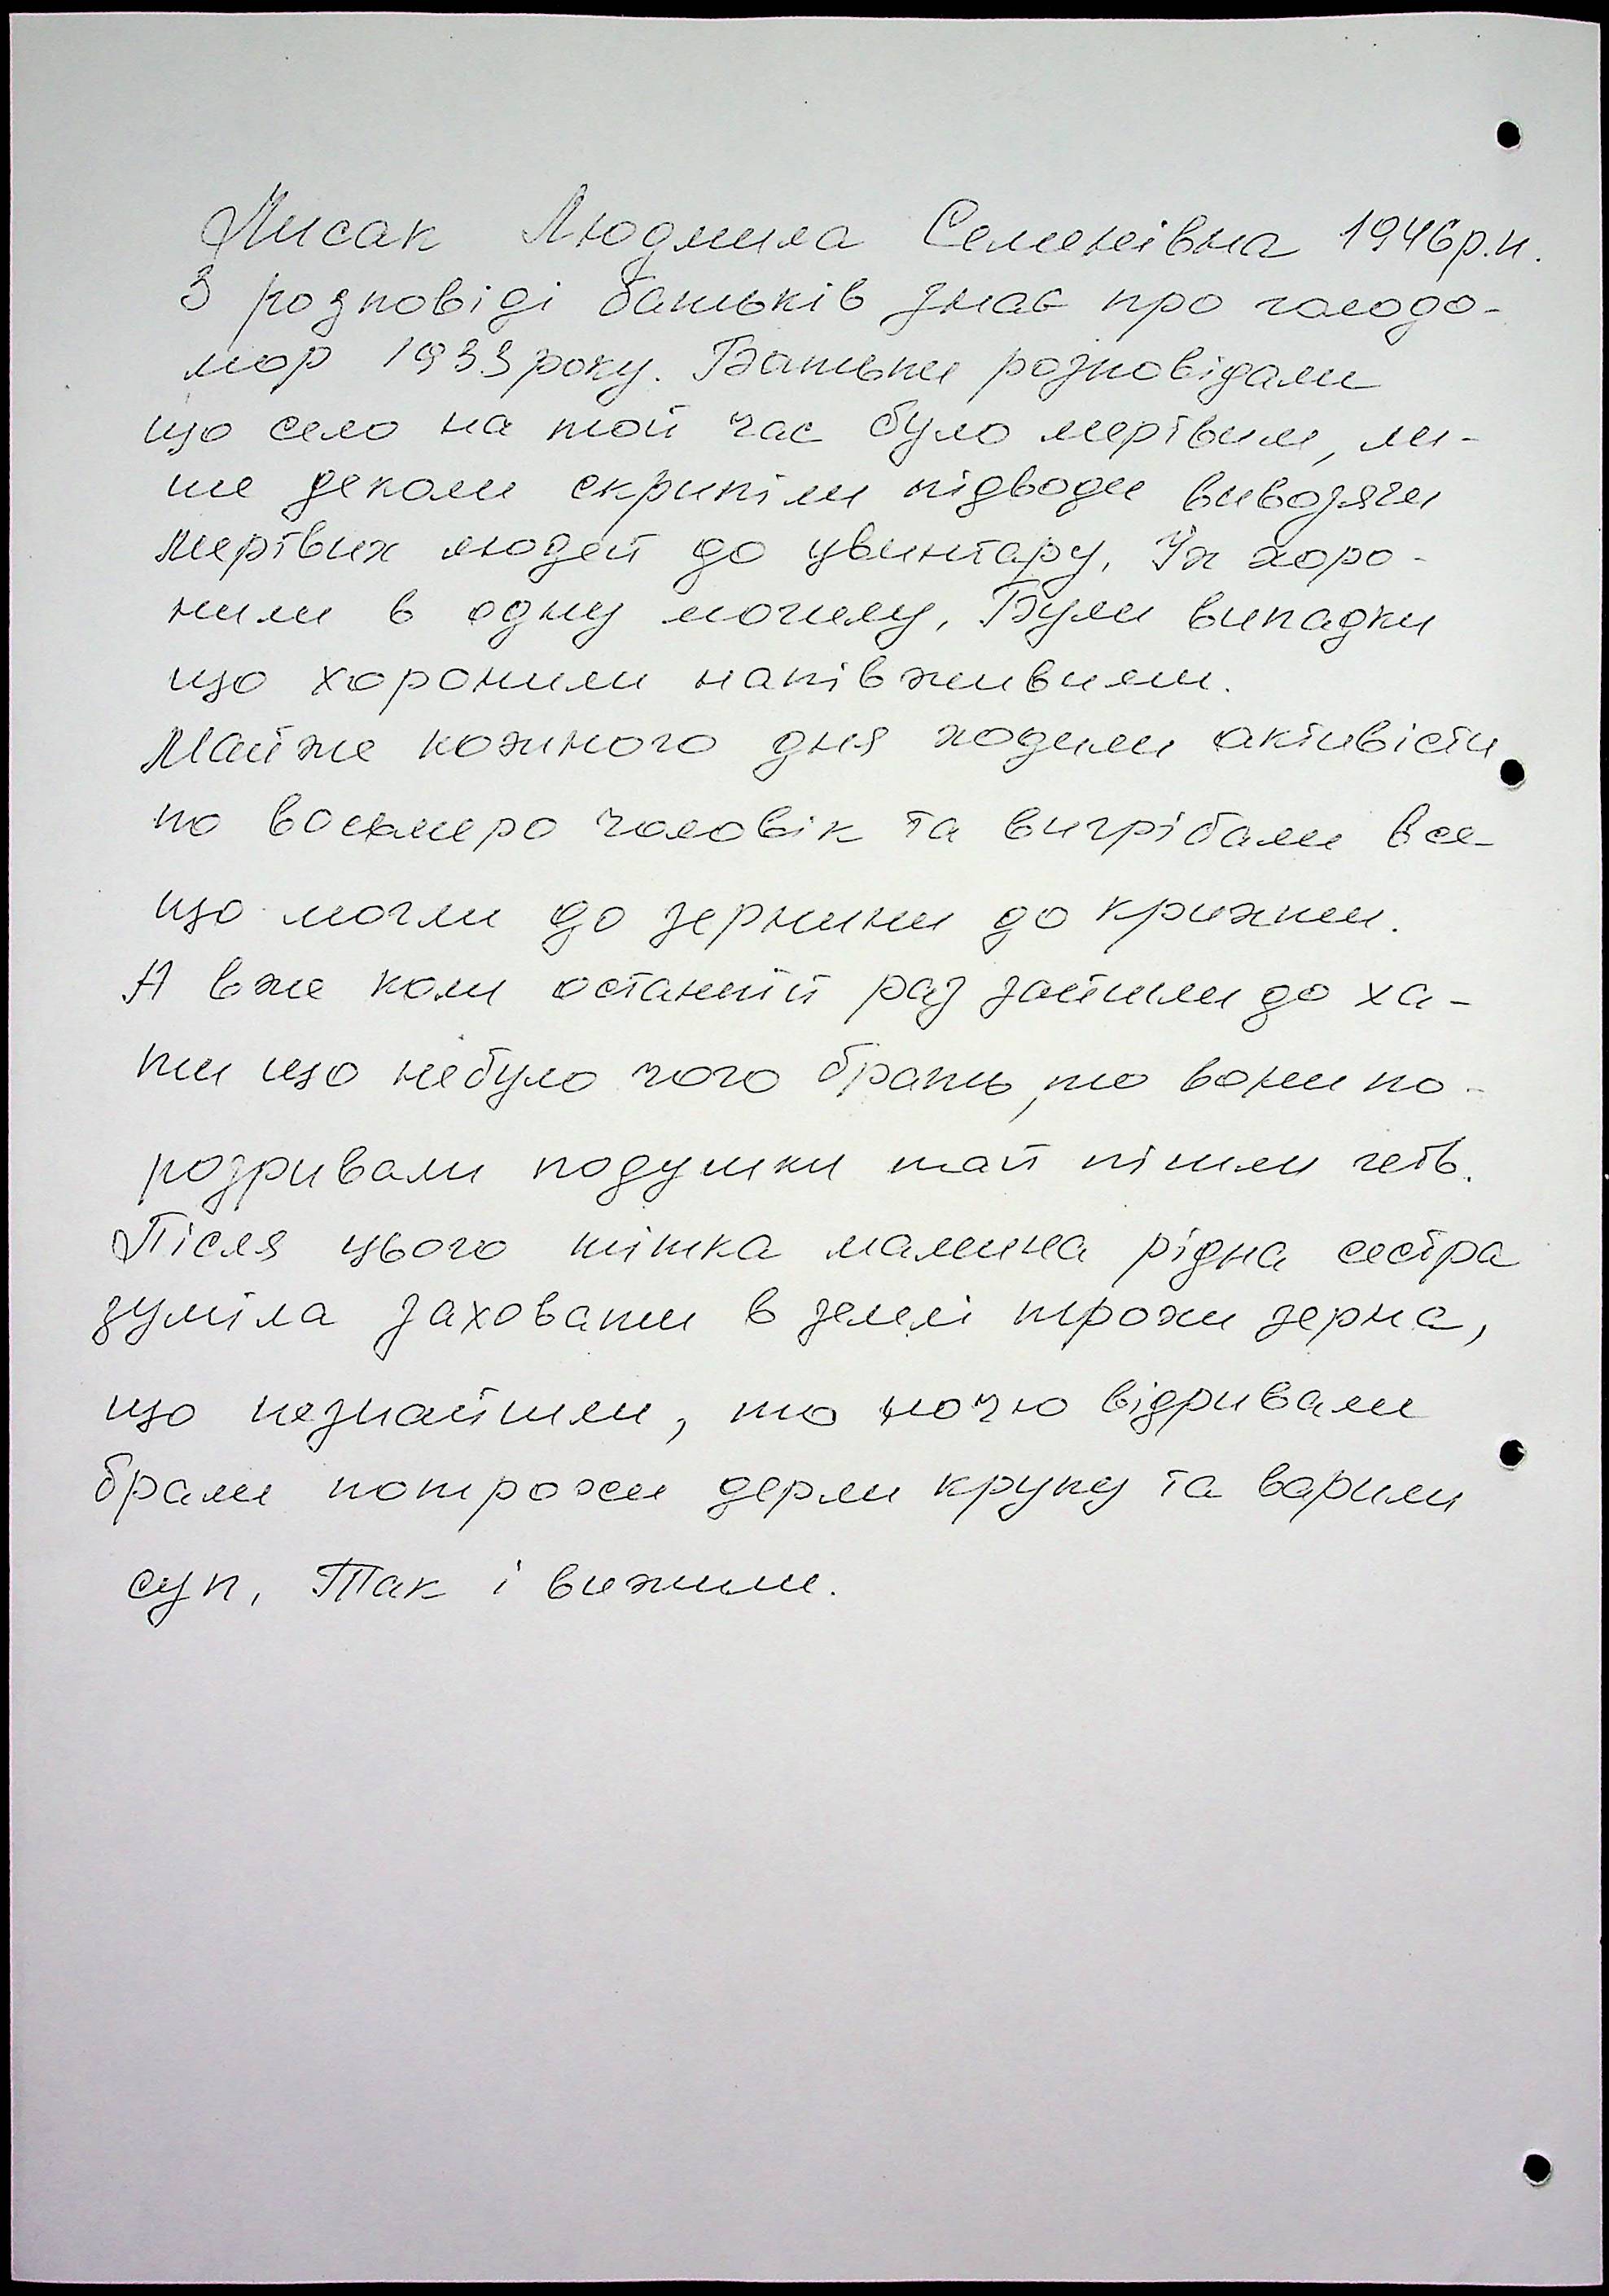 Лисак Людмила Семенівна 1946р.н.
З розповіді батьків знає про голодо-
мор 1933 року. Батьки розповідали
що село на той час було мертвим, ли-
ше деколи скрипіли підводи вивозячи
мертвих людей до цвинтару, Їх хоро-
нили в одну могилу, Були випадки
що хоронили напівживими.
Майже кожного дня ходили активісти
по восьмеро чоловік та вигрібали все
що могли до зернини до крихти.
А вже коли останній раз зайшли до ха-
ти що небуло чого брать, то вони по-
розривали подушки тай пішли геть.
Після цього тітка мамина рідна сестра
зуміла заховати в землі трохи зерна,
що незнайшли, то ночю відривали
брали потрохи дерли крупу та варили
суп, Так і вижили.